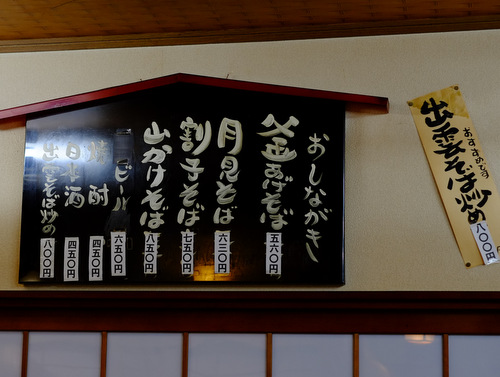 おしながき
釜あげそば
五六〇円
月見そば
六三〇円
割子そば
七五〇円
山かけそば
八五〇円
ビール
六五〇円
焼酎
四五〇円
日本酒
四五〇円
出雲そば炒め
八〇〇円
おすすめです
出雲そば炒め
八〇〇円